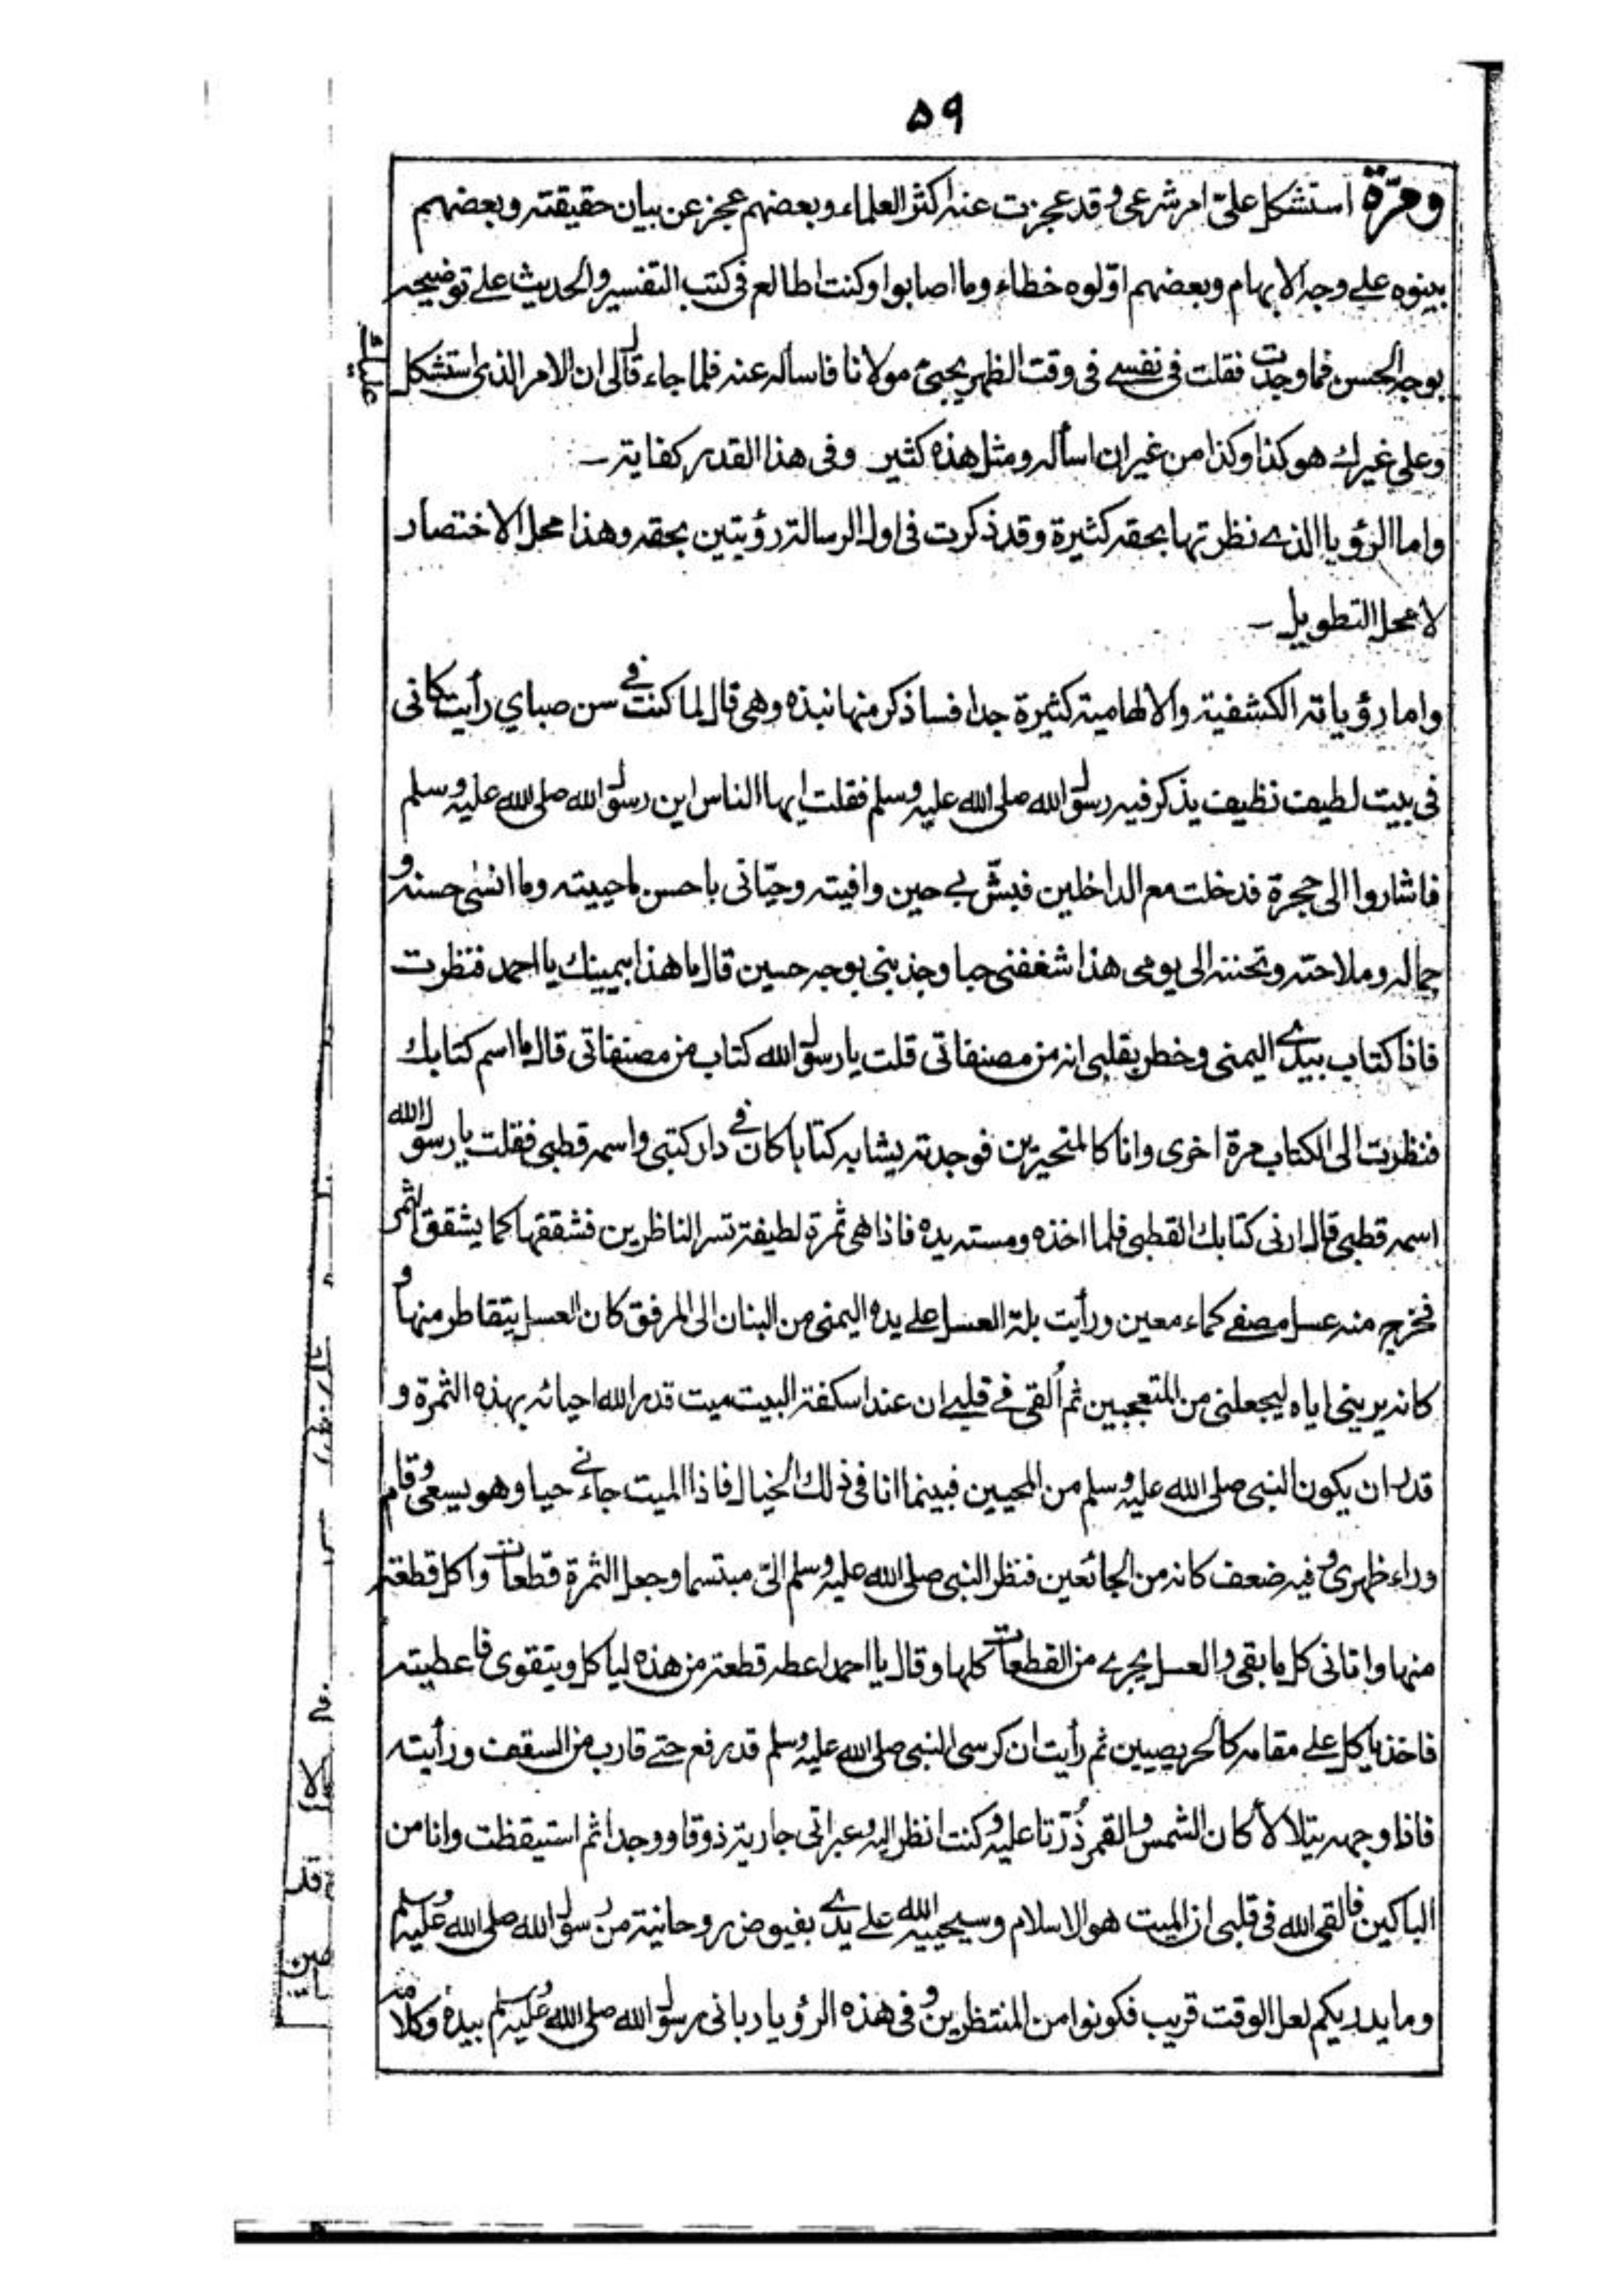 ۵۹
ومرّة استشكل علىّ امر شرعى وقد عجزت عنه اكثر العلماء وبعضهم عجز عن بيان حقيقته وبعضهم
بينوه على وجه الابهام وبعضهم اوّلوه خطاء وما اصابوا وكنت اطالع فى كتب التفسير والحديث على توضيحه
بوجه الحسن فما وجدت فقلت فى نفسے فى وقت الظهر يجيئ مولانا فاساله عنه فلما جاء قال لى ان الامر الذى استشكل عليك
وعلى غيرك هو كذا وكذا من غير ان اسأله ومثل هذه كثير وفى هذا القدر كفاية ـ
واما الرؤيا الذے نظرتها بحقه كثيرة وقد ذكرت فى اول الرسالة رؤيتين بحقه وهذا محل الاختصار
لا محل التطويل ـ
واما رؤياته الكشفية والالهامية كثيرة جدا فساذكر منها نبذه وهى قال لما كنت فے سن صباي رأيت كانى
فى بيت لطيف نظيف يذكر فيه رسول الله صلى الله عليه وسلم فقلت ايها الناس اين رسول الله صلى الله عليه وسلم
فاشاروا الى حجرة فدخلت مع الداخلين فبشّ بے حين وافيته وحيّانى باحسن ما حييته وما انسٰى حسنه و
جماله وملاحته وتحننه الى يومى هذا شغفنى حبا وجذبنى بوجه حسين قال ما هذا بيمينك يا احمد فنظرت
فاذا كتاب بيدے اليمنى وخطر بقلبى انه من مصنفاتى قلت يا رسول الله كتاب من مصنفاتى قال ما اسم كتابك
فنظرت الى الكتاب مرة اخرى وانا كالمتحيرين فوجدته يشابه كتابا كان فے دار كتبى واسمه قطبى فقلت يا رسول الله
اسمه قطبى قال ارنى كتابك القطبى فلما اخذه ومسته يده فاذا هى ثمرة لطيفة تسر الناظرين فشققها كما يشقق الثمر
فخرج منه عسل مصفے كماء معين ورأيت بلة العسل على يده اليمنى من البنان الى المرفق كان العسل يتقاطر منها و
كانه يرينى اياه ليجعلنى من المتعجبين ثم اُلقى فے قلبے ان عند اسكفة البيت ميت قدر الله احيائه بهذه الثمرة و
قدر ان يكون النبى صلى الله عليه وسلم من المحيين فبينما انا فى ذلك الخيال فاذا الميت جاءنے حيا وهو يسعى وقام
وراء ظهرى وفيه ضعف كانه من الجائعين فنظر النبى صلى الله عليه وسلم الىّ مبتسما وجعل الثمرة قطعات واكل قطعة
منها واتانى كل ما بقى والعسل يجرے من القطعات كلها وقال يا احمد اعطه قطعة من هذه لياكل ويتقوى فاعطيته
فاخذ ياكل على مقامه كالحريصين ثم رأيت ان كرسى النبى صلى الله عليه وسلم قد رفع حتے قارب من السقف ورأيته
فاذا وجهه يتلالأ كان الشمس والقمر ذُرّتا عليه وكنت انظر اليه وعبراتى جارية ذوقا ووجدا ثم استيقظت وانا من
الباكين فالقى الله فى قلبى ان الميت هو الاسلام وسيحييه الله على يدے بفيوض روحانية من رسول الله صلى الله عليه وسلم
وما يدريكم لعل الوقت قريب فكونوا من المنتظرين وفى هذه الرؤيا ربانى رسول الله صلى الله عليه وسلم بيده وكلامه